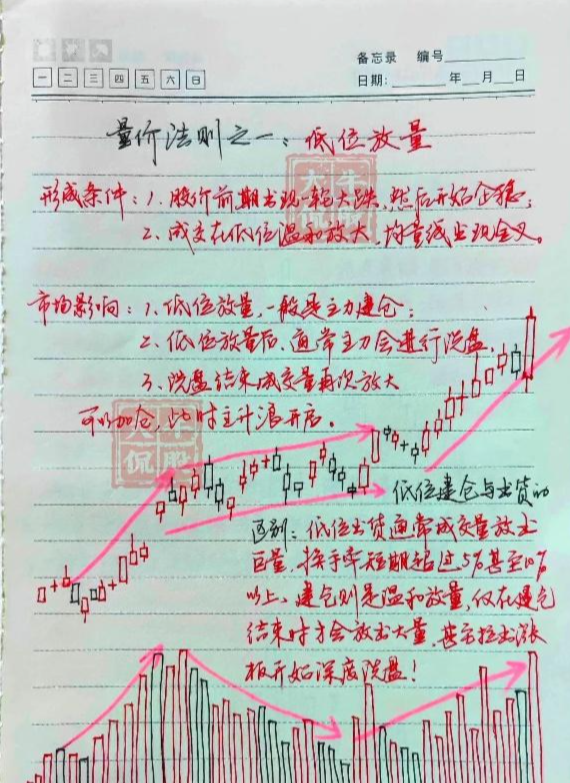 备忘录 编号
一 二 三 四 五 六 日
日期: 年 月 日
量价法则之一:低位放量
大牛侃股
形成条件:1、股价前期出现一轮大跌,然后开始企稳;
2、成交在低位温和放大,均量线出现金叉。
市场影响:1、低位放量,一般是主力建仓;
2、低位放量后,通常主力会进行洗盘,
3、洗盘结束成交量再次放大
可以加仓,此时主升浪开启。
大牛侃股
低位建仓与出货的
区别:低位出货通常成交量放出
巨量,换手率短期超过5%甚至10%
以上,建仓则是温和放量,仅在建仓
结束时才会放出大量,甚至拉出涨
板开始深度洗盘!